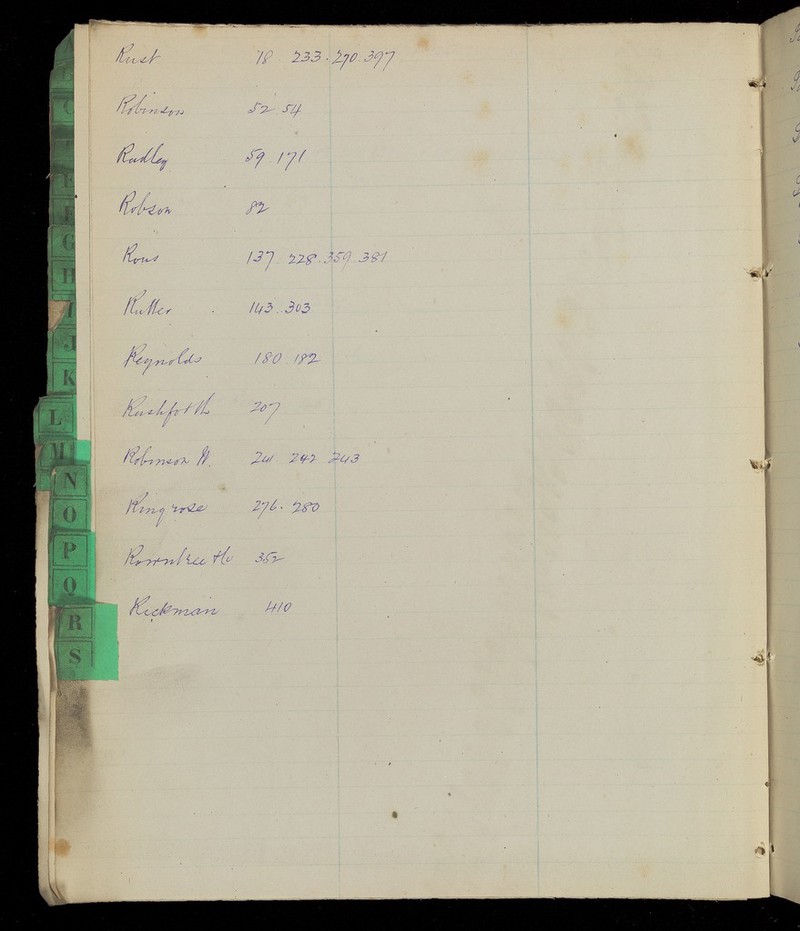 Rust 18 . 233 . 270 . 397
Robinson 52 . 54
Radley 59 . 171
Robson 82
Rous 137 . 228 . 359 . 381
Rutter 143 . 303
Reynolds 180 . 182
Rushforth 207
Robinson W. 241 . 242 243
Ringrose 276 . 280
Rowntree & Co 352
Rickman 410
C
G
H
I
J
K
L
M
N
O
P
Q
R
S